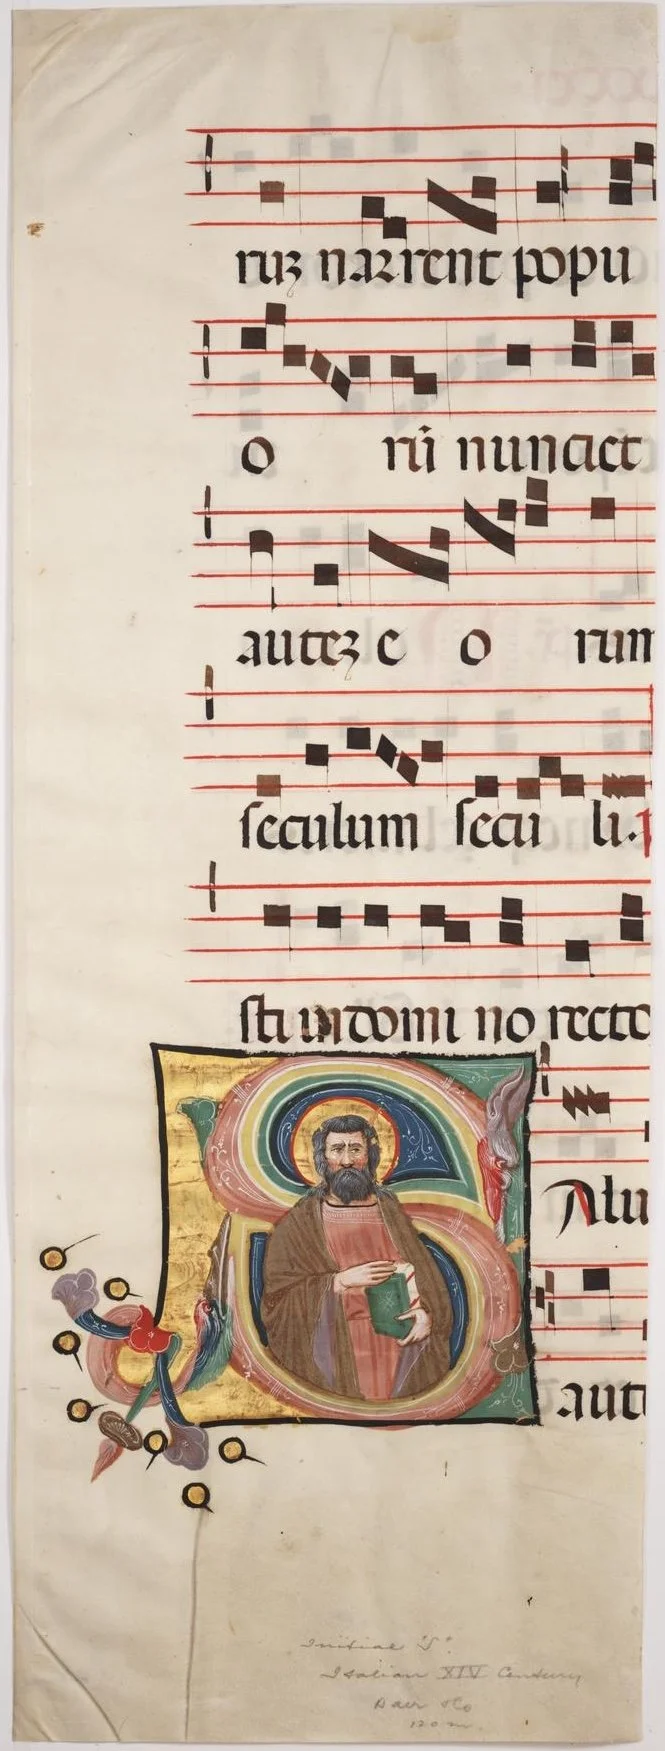 ruꝫ narrent popu
o rū nunciet
auteꝫ e o rum
seculum secu li.
sti in domi no recto
Alu
aut
Initial "S".
Italian XIV Century